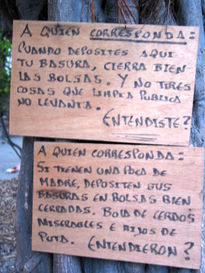 A QUIEN CORRESPONDA:
CUANDO DEPOSITES AQUI
TU BASURA, CIERRA BIEN
LAS BOLSAS. Y NO TIRES
COSAS QUE LIMPIA PUBLICA
NO LEVANTA.
ENTENDISTE?
A QUIEN CORRESPONDA:
SI TIENEN UNA POCA DE
MADRE, DEPOSITEN SUS
BASURAS EN BOLSAS BIEN
CERRADAS. BOLA DE CERDOS
MISERABLES E HIJOS DE
PUTA. ENTENDIERON?